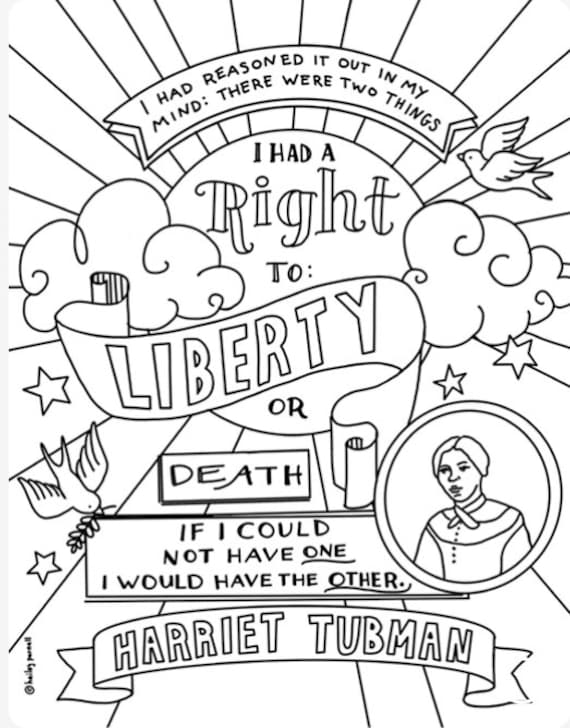 I HAD REASONED IT OUT IN MY
MIND: THERE WERE TWO THINGS
I HAD A
Right
TO:
LIBERTY
OR
DEATH
IF I COULD
NOT HAVE ONE
I WOULD HAVE THE OTHER.
HARRIET TUBMAN
©hailey purnell